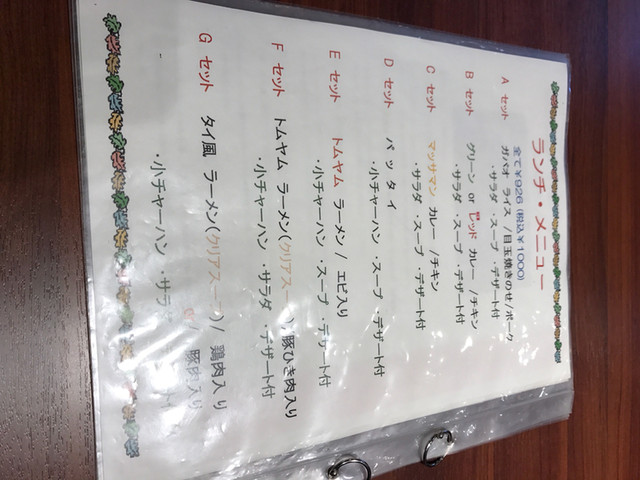 ランチ・メニュー
全て¥926(税込¥1000)
A セット ガパオ ライス /目玉焼きのせ/ポーク
・サラダ ・スープ ・デザート付
B セット グリーン or レッド カレー /チキン
・サラダ ・スープ ・デザート付
C セット マッサマン カレー /チキン
・サラダ ・スープ ・デザート付
D セット パッタイ
・小チャーハン ・スープ ・デザート付
E セット トムヤム ラーメン / エビ入り
・小チャーハン ・スープ ・デザート付
F セット トムヤム ラーメン(クリアスープ)/豚ひき肉入り
・小チャーハン ・サラダ ・デザート付
G セット タイ風 ラーメン(クリアスープ)/ 鶏肉入り
/ 豚肉入り
・小チャーハン ・サラダ